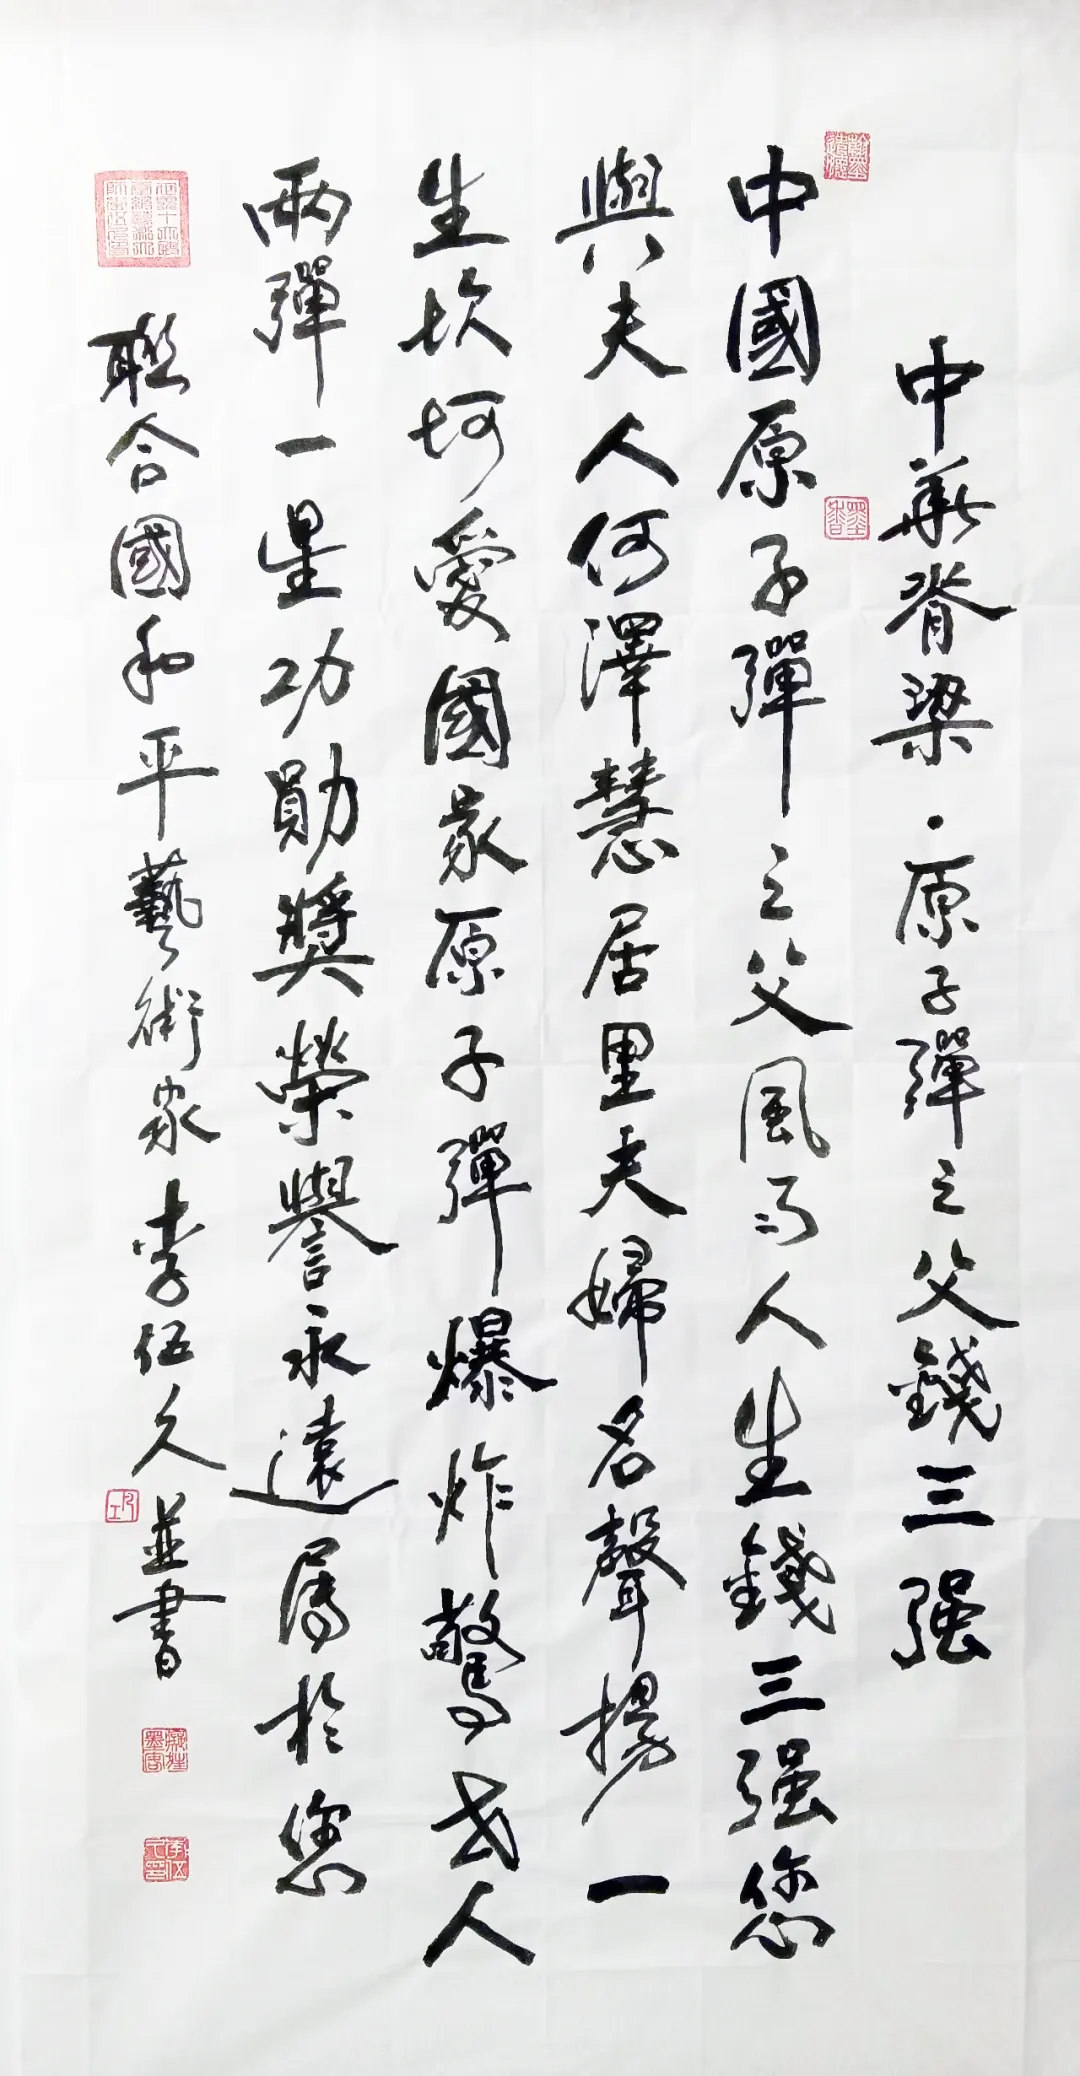 中華脊梁·原子彈之父錢三强
中國原子彈之父風雨人生錢三强您
與夫人何澤慧居里夫婦名聲揚一
生坎坷愛國家原子彈爆炸驚世人
兩彈一星功勛獎榮譽永遠屬於您
聯合國和平藝術家李伍久並書
墨香